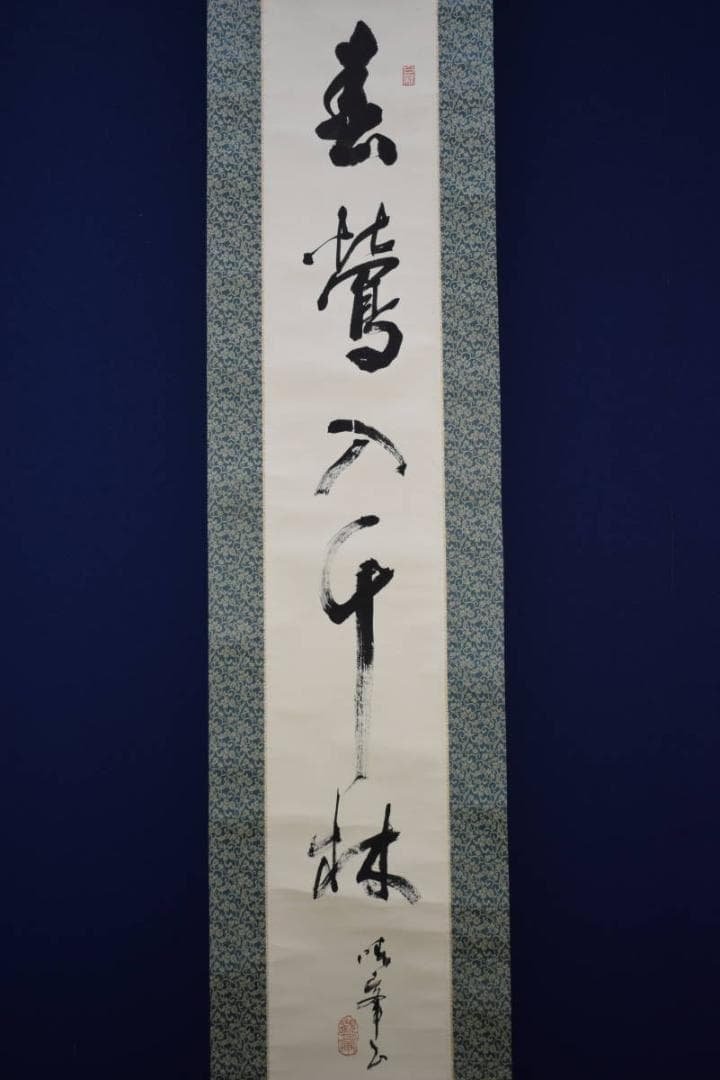 春鶯入千林